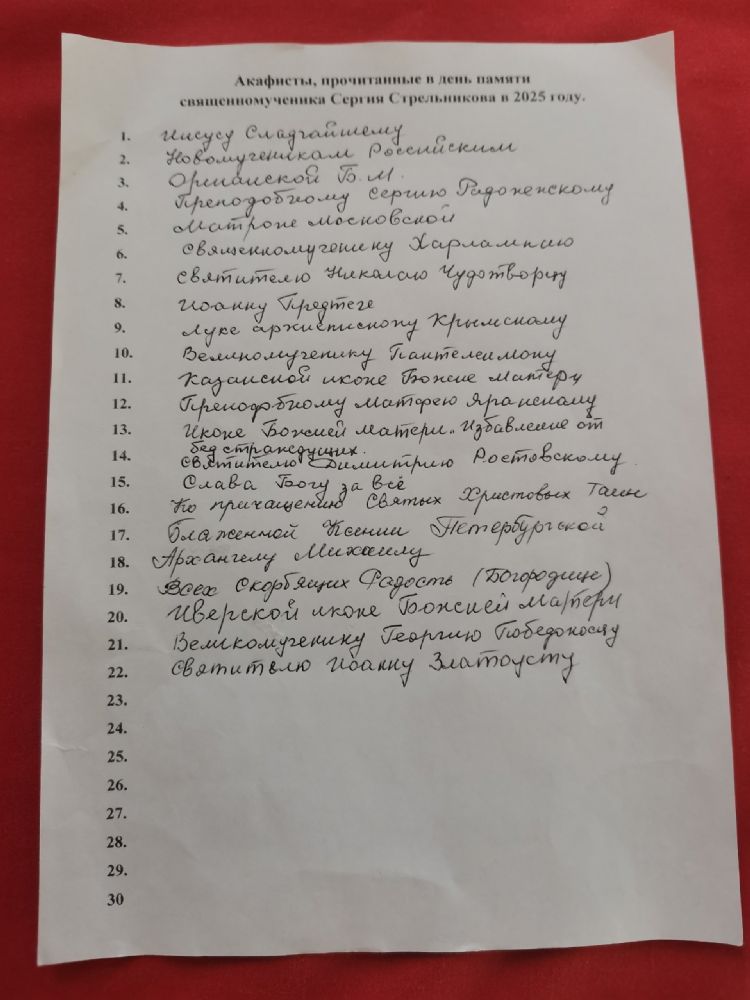 Акафисты, прочитанные в день памяти
священномученика Сергия Стрельникова в 2025 году.
1. Иисусу Сладчайшему
2. Новомученикам Российским
3. Б.М.
4. Преподобному Сергию Радонежскому
5. Матроне Московской
6. Священномученику Харлампию
7. Святителю Николаю Чудотворцу
8. Иоанну Предтече
9. Луке архиепископу Крымскому
10. Великомученику Пантелеимону
11. Казанской иконе Божие Матери
12. Преподобному Матфею Яранскому
13. Иконе Божией Матери "Избавление от
бед страждущих.
14. Святителю Димитрию Ростовскому
15. Слава Богу за всё
16. Ко причащению Святых Христовых Таин
17. Блаженной Ксении Петербургской
18. Архангелу Михаилу
19. Всех Скорбящих Радость (Богородице)
20. Иверской иконе Божией Матери
21. Великомученику Георгию Победоносцу
22. Святителю Иоанну Златоусту
23.
24.
25.
26.
27.
28.
29.
30